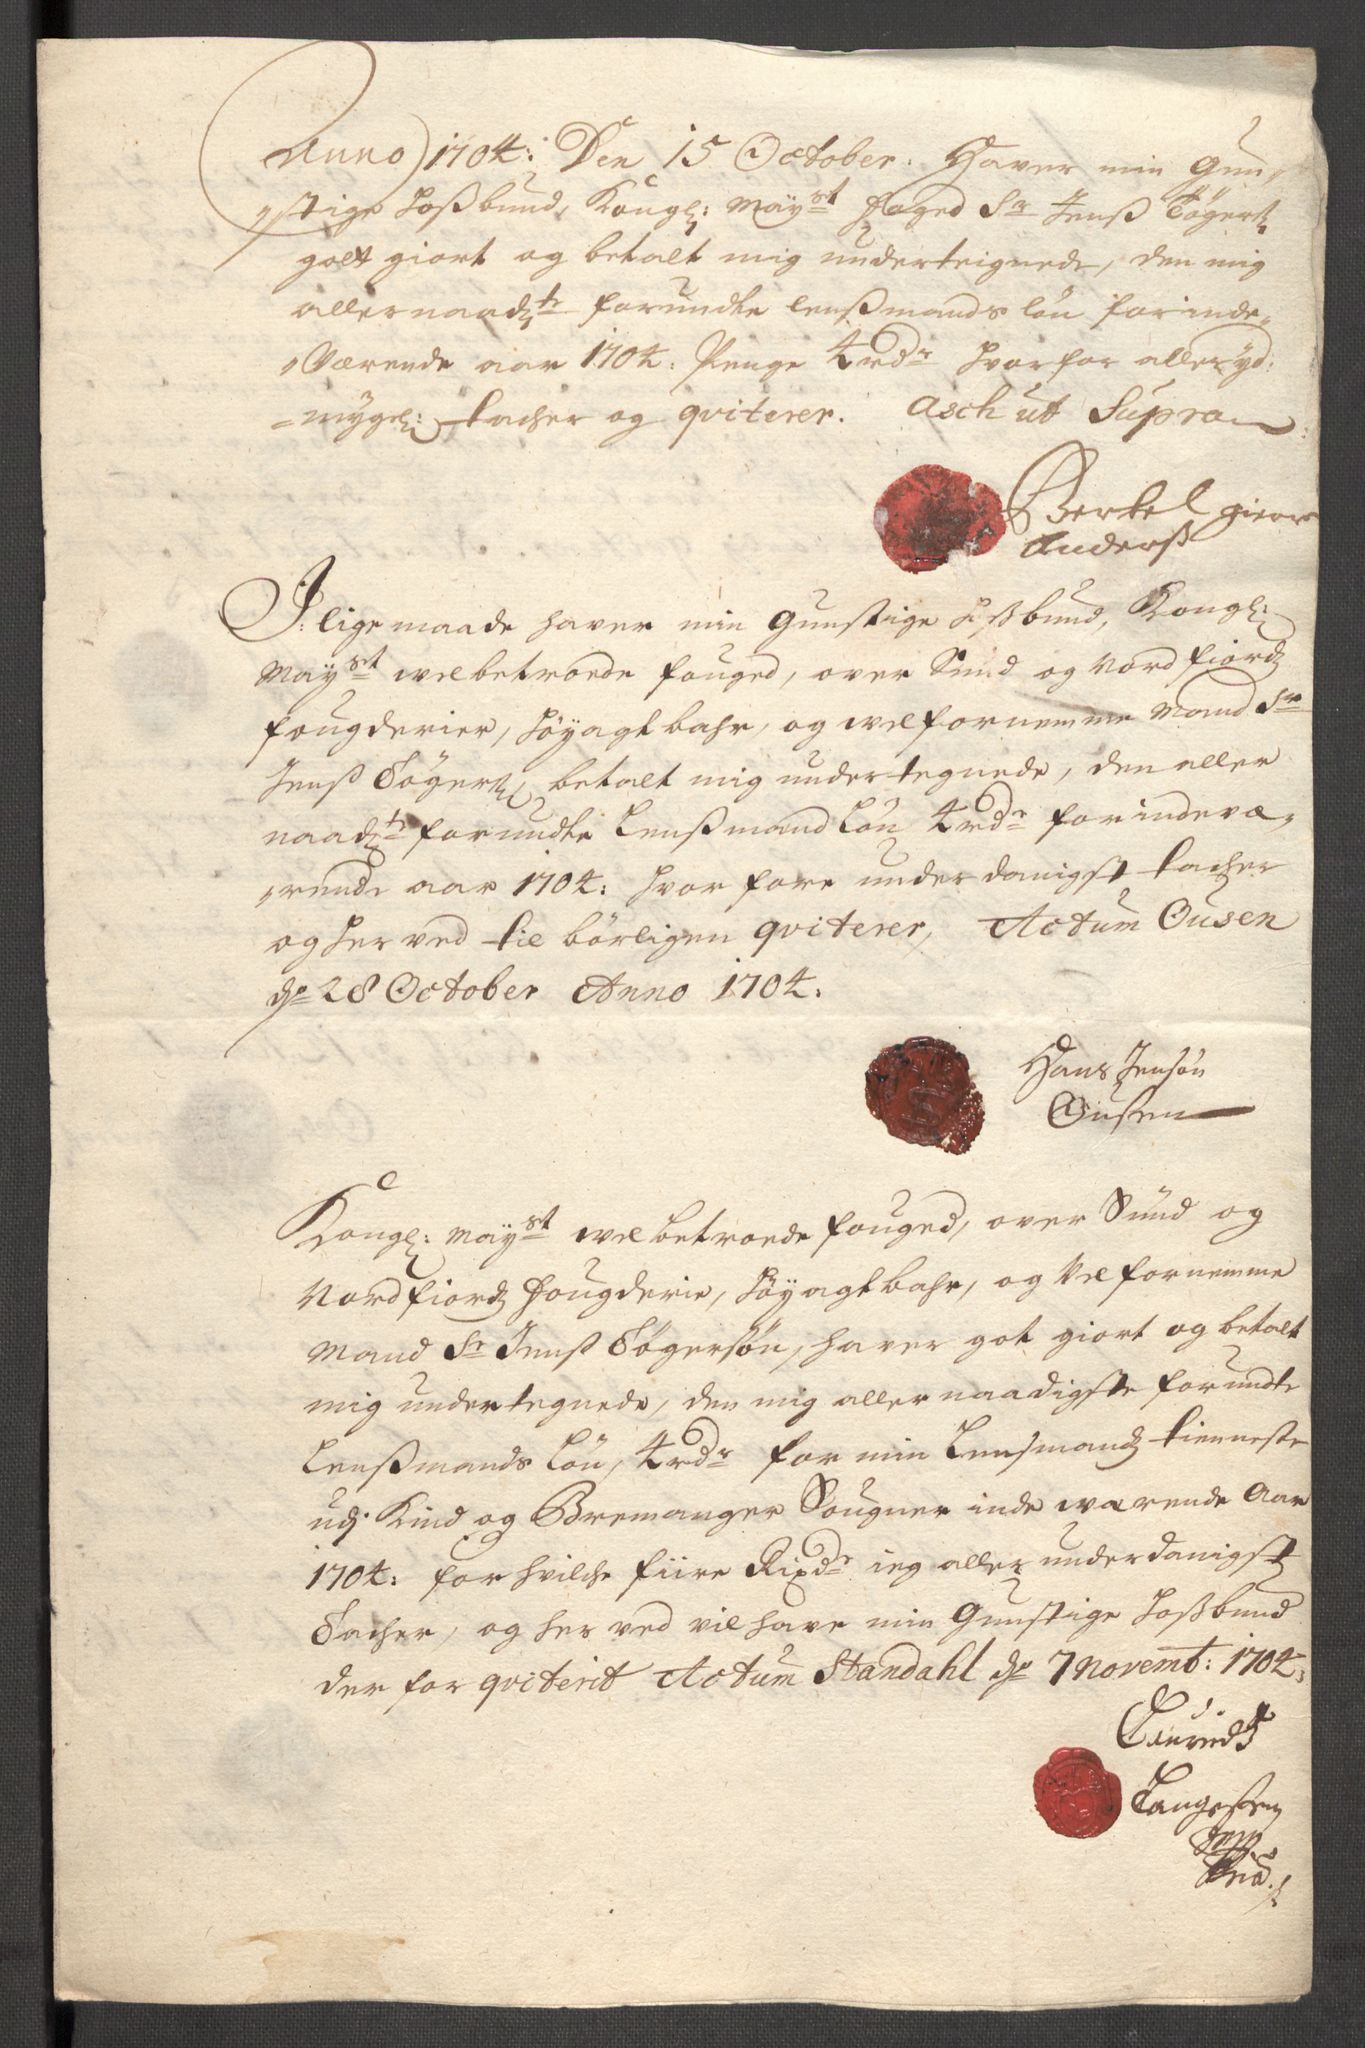 Anno 1704: Den 15 October. Haver min Gun,
,stige Hosbund, Kongl: Mayst foged Sr Jenß Tøgerß:
gott giort og betalt mig underteignede, den mig
allernaadte forundte lenßmands løn for inde,
,Værende aar 1704: Penge 4 rdr hvorfor allerryd:
=mygel: tacher og qviterer. Asch ut Supra
Berkel
Anderß
I lige maade haver min Gunstige Hoßbund, Kongl:
Mayst welbetroede fouged, over Sund og Nordfiordz
fougderier, høyagtbahr, og welfornemme Mand Sr
Jenß Tøgerß: betalt mig undertegnede, den aller
naadte forundte Lenßmand Løn 4 rdr for indevæ,
,rende aar 1704: hvor fore underdanigst tacher
og her ved tilbørligen qviterer, Actum Ousen
dn 28 October Anno 1704:
Hans Jensøn
Ousen
Kongl: Mayst welbetroede fouged, over Sünd og
Nordfiordz fougderie, høyagtbahr, og Velfornemme
Mand Sr Jenß Tøgersøn, haver got giort og betalt
mig undertegnede, den mig allernaadigste forundte
Lenßmands Løn, 4 rdr for min Lensmandz tienneste
udj Kind og Bremanger Sougner indeværende Aar
1704: for hvilche fiire Rixdr ieg aller underdanigst
Tacher, og her ved vil have min Gunstige Hoßbund
derfor qviterit Actum Standahl dn 7 Novembt: 1704:
Lauridtz